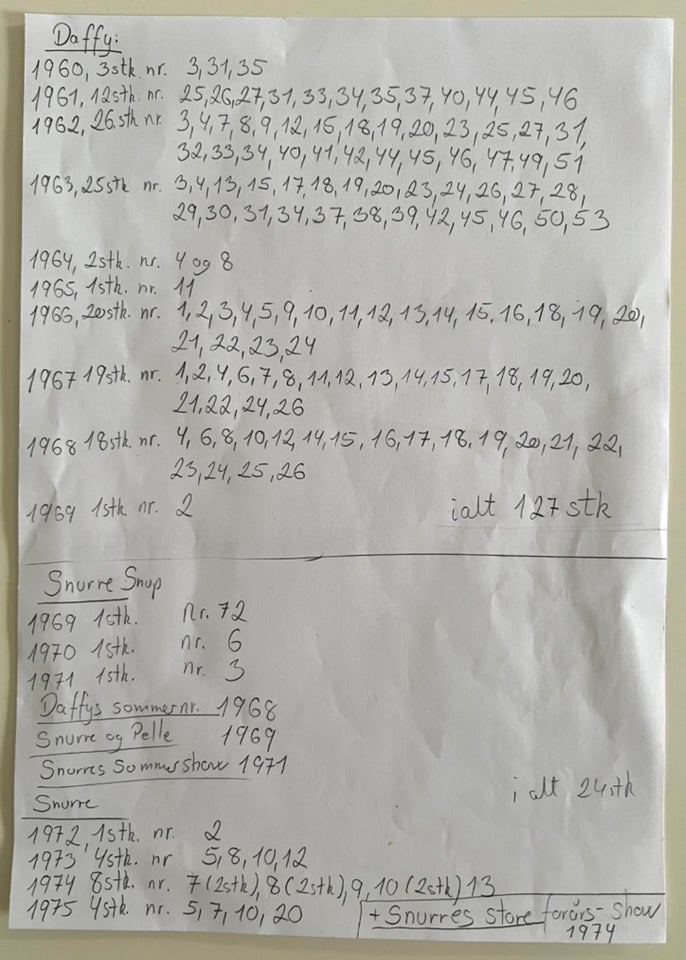 Daffy:
1960, 3stk. nr. 3,31,35
1961, 12stk. nr. 25,26,27,31,33,34,35,37,40,44,45,46
1962, 26.stk nr. 3,4,7,8,9,12,16,18,19,20,23,25,27,31,
32,33,34,40,41,42,44,45,46,47,49,51
1963, 25stk nr. 3,4,13,15,17,18,19,20,23,24,26,27,28,
29,30,31,34,37,38,39,42,45,46,50,53
1964, 2stk. nr. 4 og 8
1965, 1stk. nr. 11
1966, 20stk. nr. 1,2,3,4,5,9,10,11,12,13,14,15.16,18,19,20,
21,22,23,24
1967 19stk. nr. 1,2,4,6,7,8,11,12,13,14,15,17,18,19,20,
21.22,24,26
1968 18stk. nr. 4,6,8,10,12,14,15,16,17,18.19,20,21,22,
23,24,25,26
1969 1stk nr. 2
ialt 127 stk
Snurre Snup
1969 1stk. Nr. 72
1970 1stk. nr. 6
1971 1stk. nr. 3
Daffys sommernr. 1968
Snurre og Pelle 1969
Snurres Sommershow 1971
i alt 24stk
Snurre
1972, 1stk. nr. 2
1973 4stk. nr 5,8,10,12
1974 8stk. nr. 7(2stk), 8(2stk), 9, 10(2stk) 13
1975 4stk. nr. 5,7,10,20
+ Snurres store forårs-show
1974